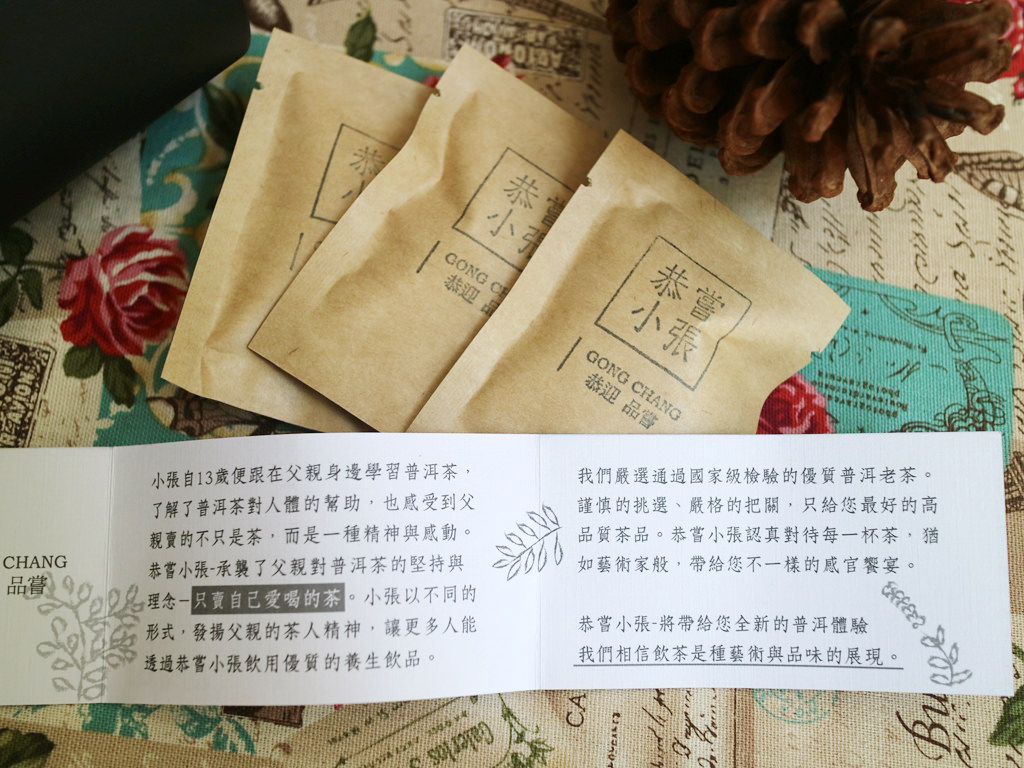 恭
小
恭嘗
小張
GONG
恭迎 品
恭嘗
小張
GONG CHANG
恭迎 品嘗
CHANG
品嘗
小張自13歲便跟在父親身邊學習普洱茶，
了解了普洱茶對人體的幫助，也感受到父
親賣的不只是茶，而是一種精神與感動。
恭嘗小張-承襲了父親對普洱茶的堅持與
理念–只賣自己愛喝的茶。小張以不同的
形式，發揚父親的茶人精神，讓更多人能
透過恭嘗小張飲用優質的養生飲品。
我們嚴選通過國家級檢驗的優質普洱老茶。
謹慎的挑選、嚴格的把關，只給您最好的高
品質茶品。恭嘗小張認真對待每一杯茶，猶
如藝術家般，帶給您不一樣的感官饗宴。
恭嘗小張-將帶給您全新的普洱體驗
我們相信飲茶是種藝術與品味的展現。
CA